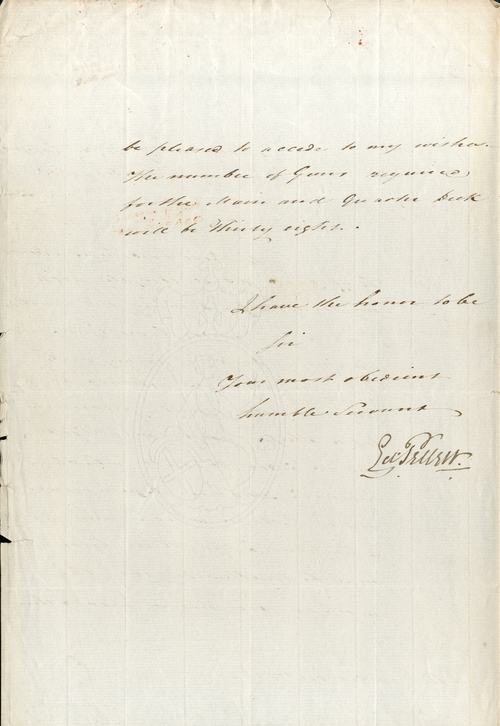 be pleased to accede to my wishes.
The number of Guns required
for the Main and Quarter Deck
will be Thirty eight.
I have the honor to be
Sir
Your most obedient
humble Servant
Ed Pellew.